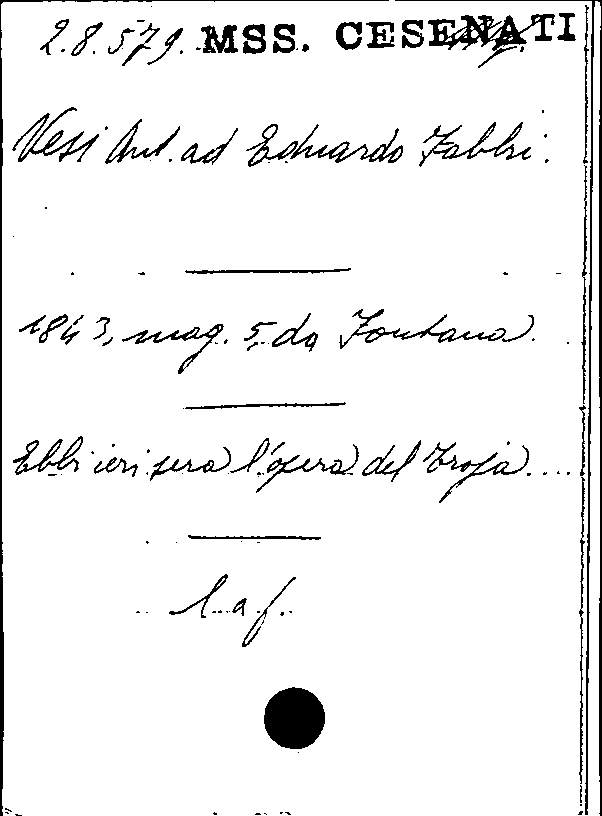 2.8.579. MSS. CESENATI
Vesi Ant. ad Eduardo Fabbri.
1843, mag. 5, da Fontana.
Ebbi ieri sera l'opera del Troja....
l. a f.